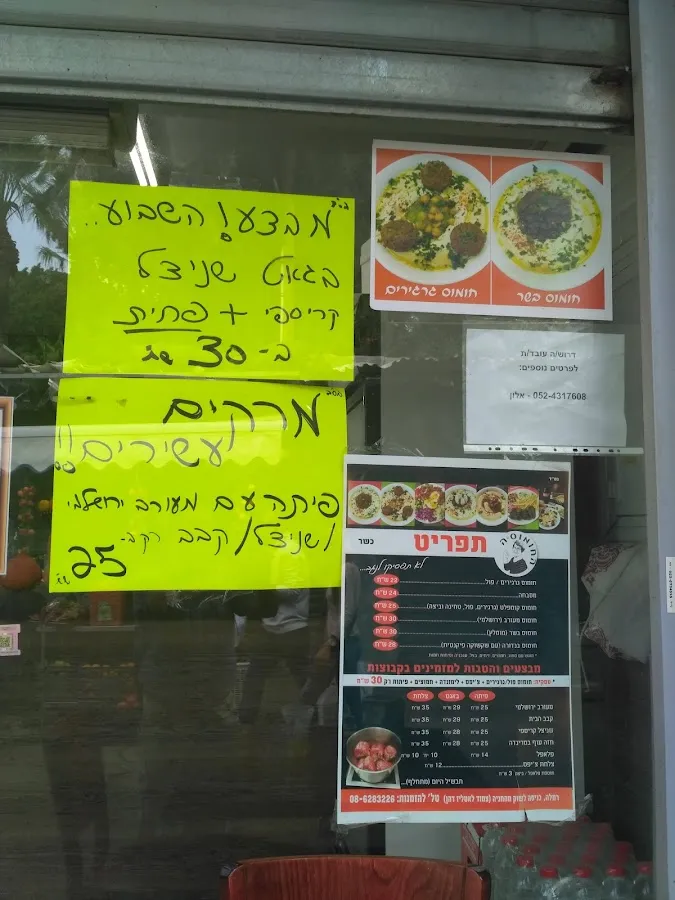 בס"ד
מבצע! השבוע..
בגאט שניצל
קריספי + פחית
ב- 30 ש"ח
בס"ד
מרקים
עשירים!!
פיתה עם מעורב ירושלמי
/שניצל/ קבב רק ב-
25 ש"ח
חומוס גרגירים
חומוס בשר
דרוש/ה עובד/ת
לפרטים נוספים:
052-4317608 - אלון
תפריט
כשר
החומוסיה
חומוס גרגירים / פול 23 ש"ח
מסבחה 24 ש"ח
חומוס קומפלט (גרגירים, פול, טחינה וביצה) 25 ש"ח
חומוס מעורב (ירושלמי) 30 ש"ח
חומוס בשר (מומלץ) 30 ש"ח
חומוס בנדורה (עם שקשוקה פיקנטית) 28 ש"ח
מבצעים והטבות למזמינים בקבוצות
* עסקית: חומוס פול/גרגירים + צ'יפס + לימונדה + חמוצים + פיתות רק 30 ש"ח
פיתה באגט צלחת
מעורב ירושלמי 25 ש"ח 29 ש"ח 35 ש"ח
קבב הבית 25 ש"ח 29 ש"ח 35 ש"ח
שניצל קריספי 25 ש"ח 28 ש"ח 35 ש"ח
חזה עוף במרינדה 25 ש"ח 28 ש"ח 35 ש"ח
פלאפל 14 ש"ח
צלחת צ'יפס 12 ש"ח
תבשיל היום (מתחלף)...
טל' להזמנות: 08-6283226